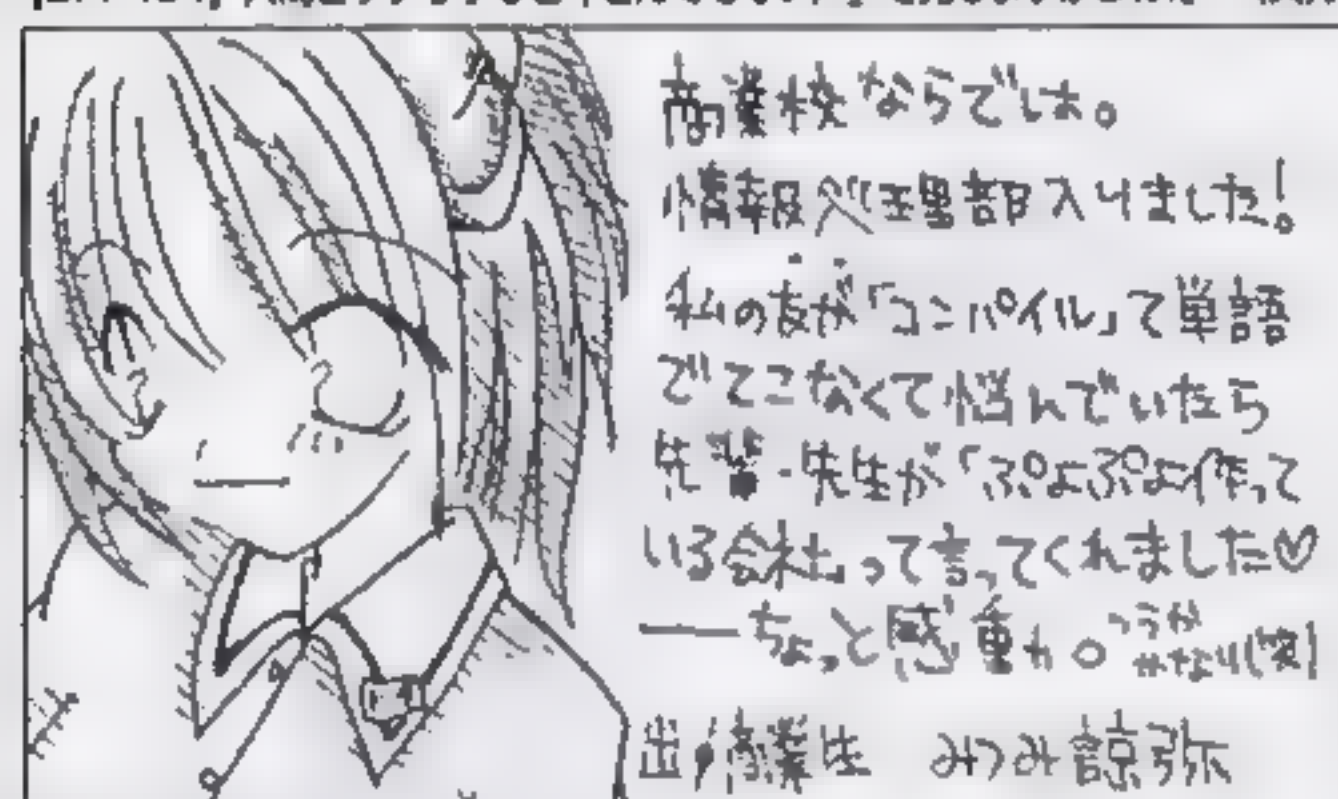 商業校ならでは。
情報処理部入りました!
私の友が「コンパイル」て単語
でてこなくて悩んでいたら
先輩・先生が「ぷよぷよ作って
いる会社」って言ってくれました♡
――ちょっと感動。
つうか
かなり(笑)
出 商業生 みつみ諒弥